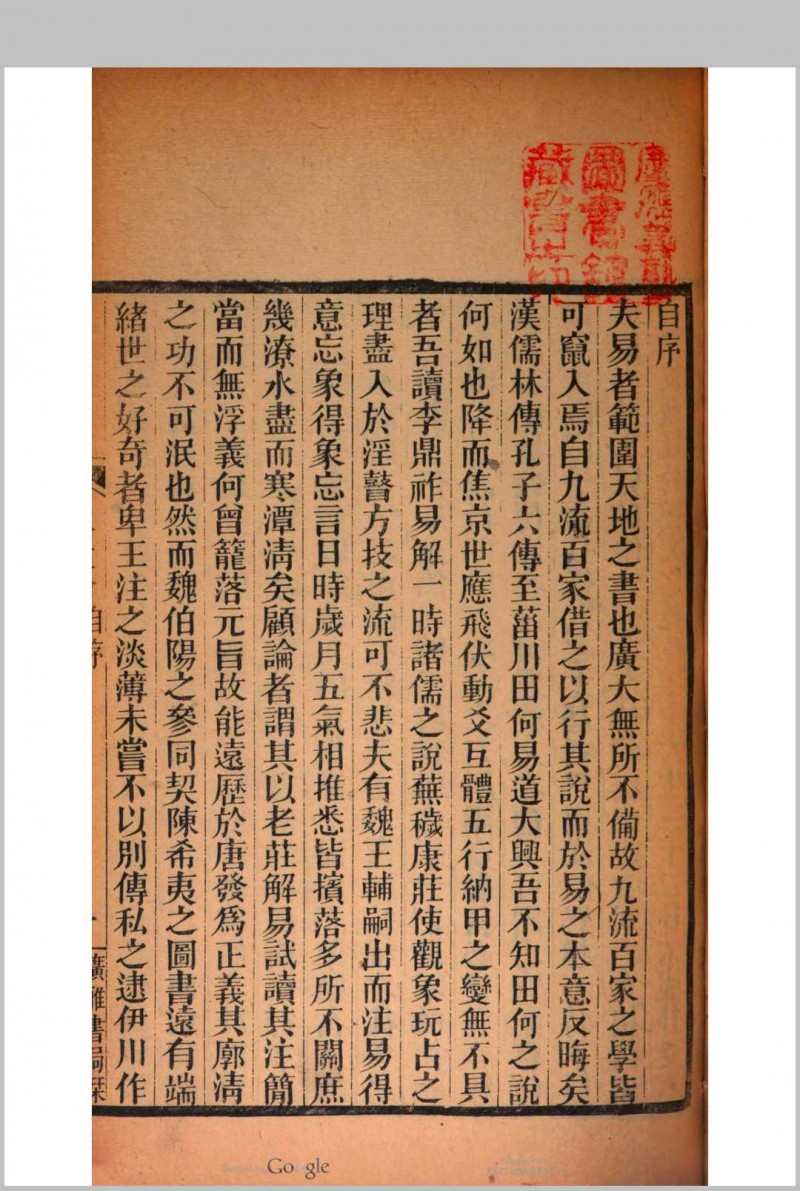 自序
夫易者範圍天地之書也廣大無所不備故九流百家之學皆
可竄入焉自九流百家借之以行其說而於易之本意反晦矣
漢儒林傳孔子六傳至菑川田何易道大興吾不知田何之說
何如也降而焦京世應飛伏動爻互體五行納甲之變無不具
者吾讀李鼎祚易解一時諸儒之說蕪穢康莊使觀象玩占之
理盡入於淫瞽方技之流可不悲夫有魏王輔嗣出而注易得
意忘象得象忘言日時歲月五氣相推悉皆擯落多所不關庶
幾潦水盡而寒潭清矣顧論者謂其以老莊解易試讀其注簡
當而無浮義何曾籠落元旨故能遠歷於唐發為正義其廓清
之功不可泯也然而魏伯陽之參同契陳希夷之圖書遠有端
緒世之好奇者卑王注之淡薄未嘗不以別傳私之逮伊川作
自序
廣雅書局栞
Google